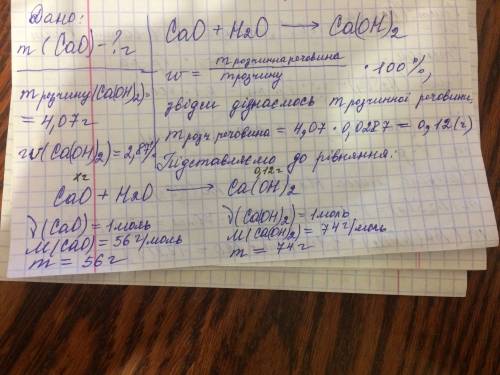 Дано:
m (CaO) - ? г
m розчину (Ca(OH)2) =
= 4,07 г
w (Ca(OH)2) = 2,87%
CaO + H2O ⟶ Ca(OH)2
w = m розчинна речовина / m розчину · 100%,
звідси дізнаємось m розчинної речовини,
m розч. речовина = 4,07 · 0,0287 = 0,12 (г)
Підставляємо до рівняння:
x г 0,12 г
CaO + H2O ⟶ Ca(OH)2
ν (CaO) = 1 моль
M (CaO) = 56 г/моль
m = 56 г
ν (Ca(OH)2) = 1 моль
M (Ca(OH)2) = 74 г/моль
m = 74 г